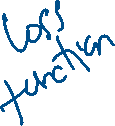 Loss
function